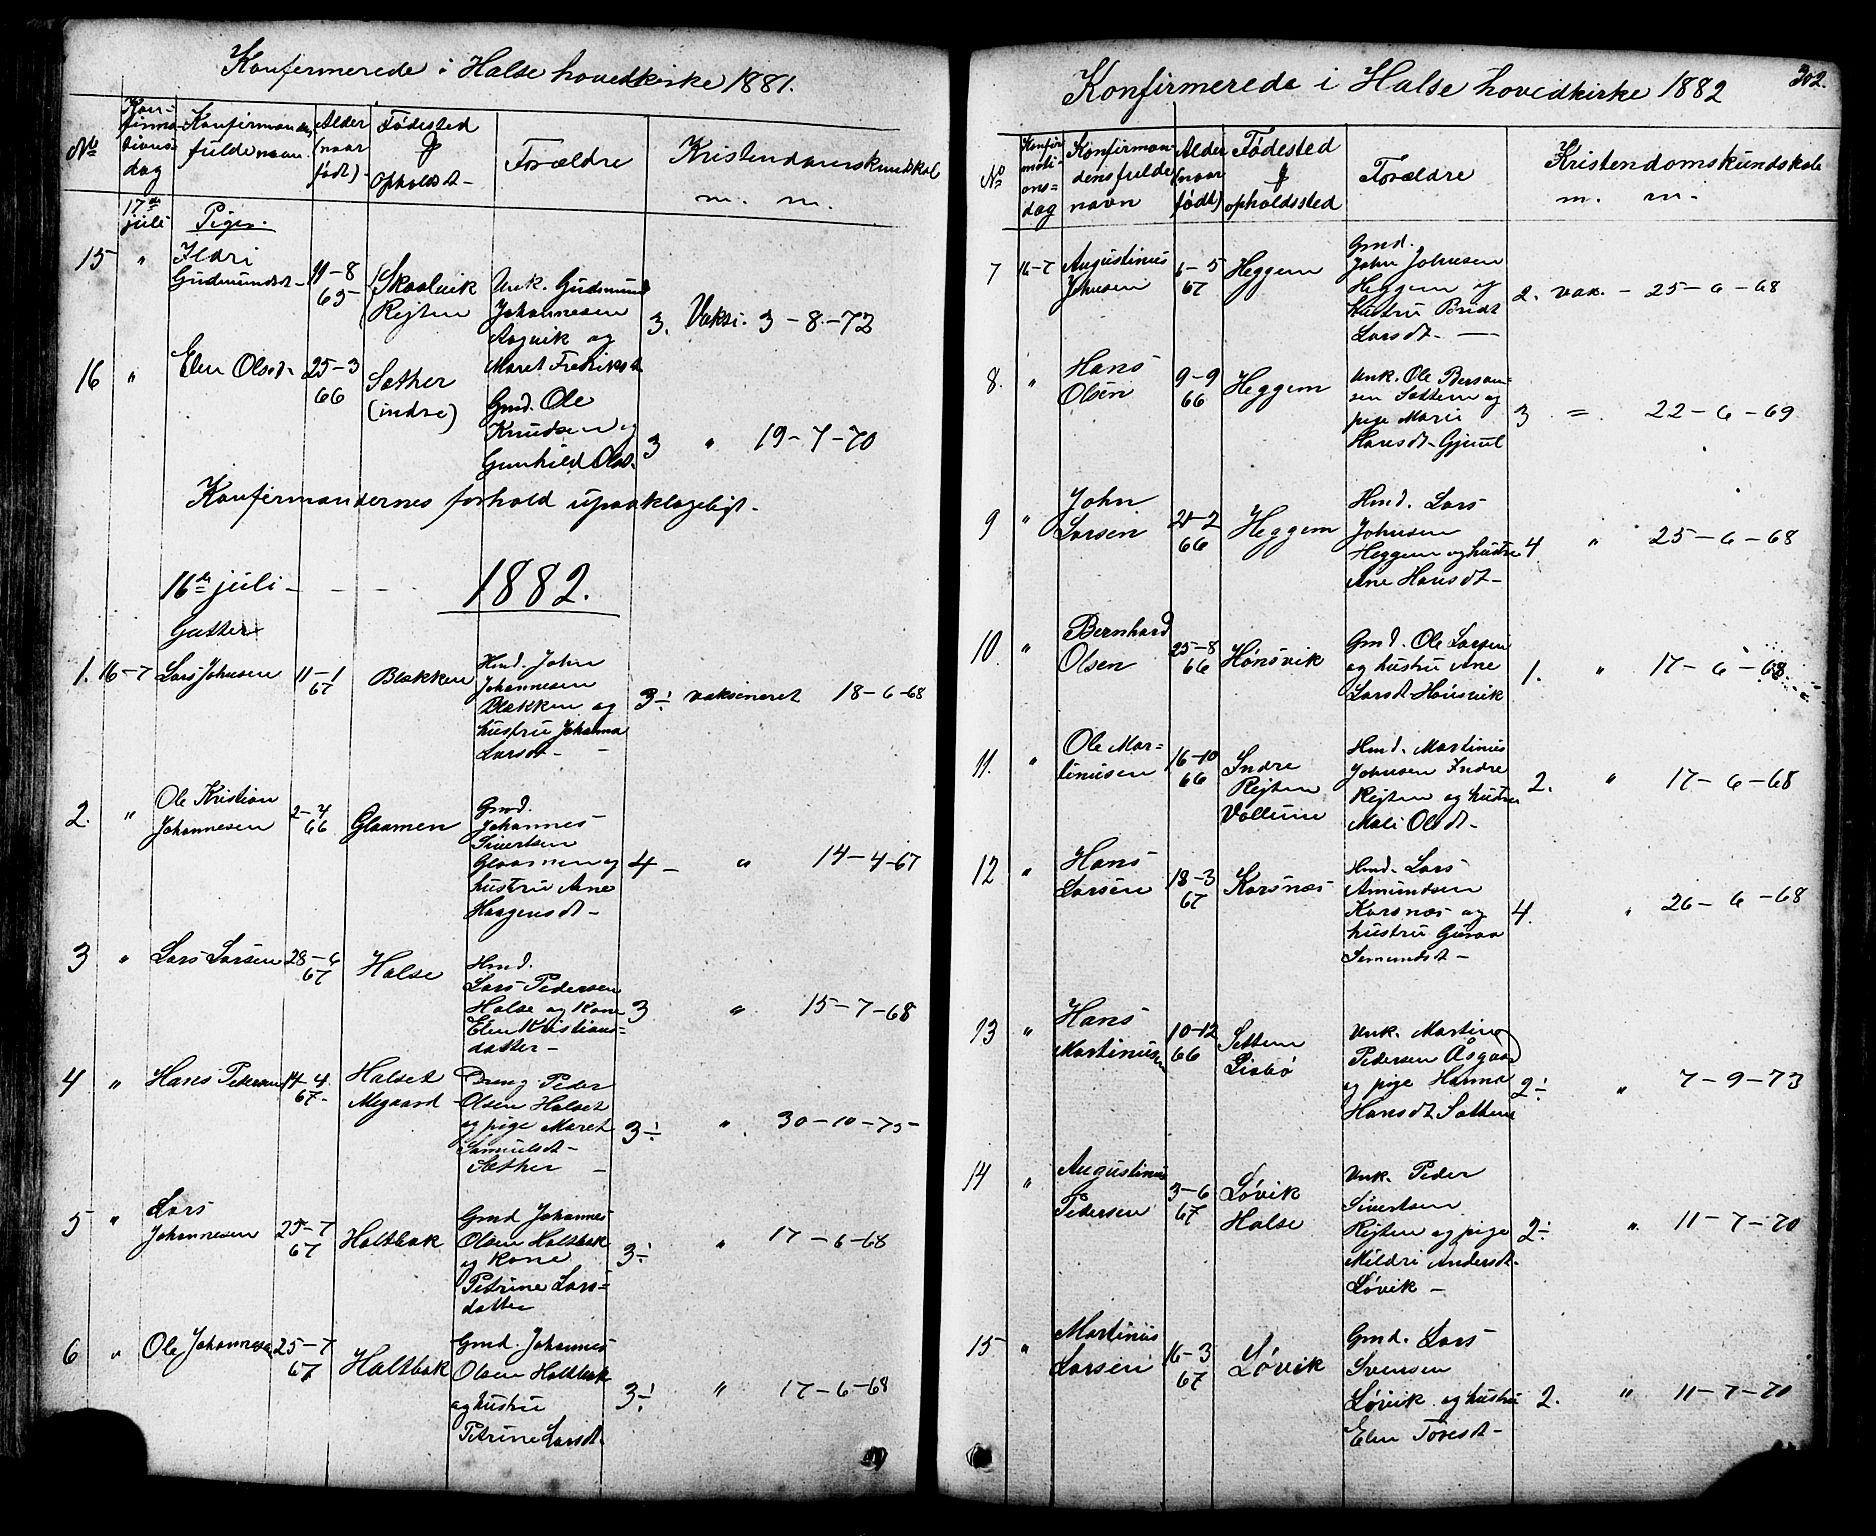 Konfirmerede i Halse hovedkirke 1881.
No
Kon-
firma-
tions-
dag
Konfirmandens
fulde navn.
Alder
(naar
født)-
Fødested
&
Opholdst-
Forældre
Kristendomskundskab
m. m.
17de
juli
Piger.
15 " Ildri
Gudmundsdt-
11-8
65
(Skaalvik
Rejten
Unk. Gudmund
Johannesen
Aagvik og
Maret Fredriksdt
3. Vaksi. 3-8.-72
16 " Elen Olsdt-
25-3
66
Sæther
(indre)
Gmd. Ole
Knudsen og
Gunhild Olsd.
3 " 19-7-70
Konfirmandernes forhold upaaklageligt-
16de juli - - - 1882.
Gutter
1. 16-7 Lars Johnsen
11-1
67
Blekken
Hmd. John
Johannesen
Blekken og
hustru Johanna
Larsdt-
3÷ vaksineret 18-6-68
2. " Ole Kristian
Johannesen
2-4
66
Glaamen
Gmd.
Johannes
Sivertsen
Glaamen og
hustru Ane
Haagensdt-
4- " 14-4-67
3 " Lars Larsen
28-6
67
Halse
Hmd.
Lars Pedersen
Halse og kone
Elen Kristians-
datter-
3 " 15-7-68
4 " Hans Pedersen
14-4
67-
Halset
Megaard
Dreng Peder
Olsen Halset
og pige Maret
Samuelsdt-
Sæther -
3÷ " 30-10-75-
5 " Lars
Johannesen
25-7
67
Holtbak
Gmd Johannes
Olsen Holtbak
og kone
Petrine Lars-
datter
3÷ " 17-6-68
6 " Ole Johannesen
25-7
67
Holtbak
Gmd. Johannes
Olsen Holtbak
og hustru
Petrine Larsdt.
3÷ " 17-6-68
Konfirmerede i Halse hovedkirke 1882
302.
No
Konfir
mati-
ons-
dag
Konfirman-
dens fulde
navn
Alder
(naar
født)
Fødested
&
opholdssted
Forældre
Kristendomskundskab
m. m.
7 16-7 Augustinus
Johnsen
6-5
67
Heggem
Gmd.
John Johnsen
Heggem og
hustru Beridt
Larsdt-
2. vax. - 25-6-68
8. " Hans
Olsen
9-9
66
Heggem
Unk. Ole Bersan-
sen Sættem og
pige Marie
Hansdt-Gjeul
3 = 22-6-69
9 " John
Larsen
21-2
66
Heggem
Hmd. Lars
Johnsen
Heggem og hustru
Ane Hansdt-
4 " 25-6-68
10. " Bernhard
Olsen
25-8
66
Hønsvik
Gmd. Ole Larsen
og hustru Ane
Larsdt-Hønsvik
1. " 17-6-68
11. " Ole Mar-
tinusen
16-10
66
Indre
Rejten
Vollum
Hmd. Martinus
Johnsen Indre
Rejten og hustru
Mali Olsdt-
2. " 17-6-68
12 " Hans
Larsen
18-3
67
Korsnæs
Hmd. Lars
Amundsen
Korsnæs og
hustru Guraa
Simundst-
4. " 26-6-68
13 " Hans
Martinusen
10-12
66
Settem
Lisbø
Unk. Martinus
Pedersen Åsgaar
og pige Hanna
Hansdt Settem
2÷ " 7-9-73
14 " Augustinus
Pedersen
3-6
67
Løvik
Halse
Unk. Peder
Sivertsen
Rejten og pige
Mildri Andersdt-
Løvik -
2÷ " 11-7-70
15 " Martinus
Larsen
16-3
67
Løvik
Gmd. Lars
Svensen
Løvik og hustru
Elen Toresdt-
2. " 11-7-70